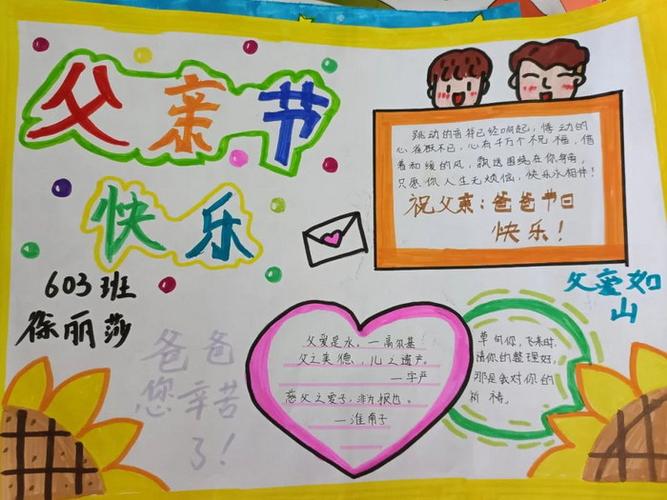 父亲节
快乐
603班
徐丽莎
跳动的音符已经响起，悸动的
心雀跃不已，心有千万个祝福，借
着和缓的风，飘送围绕在你身旁，
只愿你人生无烦恼，快乐永相伴！
祝父亲：爸爸节日
快乐！
父爱如
山
爸爸
您辛苦
了！
父爱是水。—高尔基
父之美德，儿之遗产。
—字严
慈父之爱子，非为报也。
—淮南子
飞来时，
请你的整理好，
那是会对你的
祈祷。